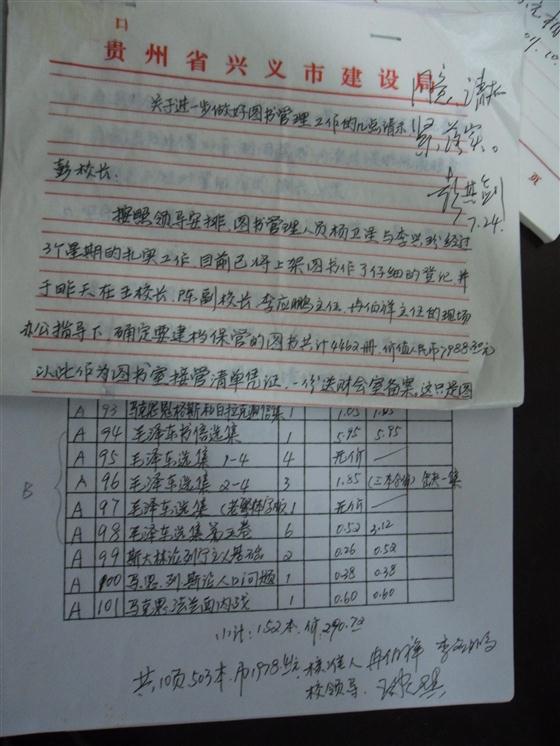 贵州省兴义市建设局
关于进一步做好图书管理工作的几点请示
同意,请
落实。
7.24.
彭校长:
按照领导安排,图书管理人员杨卫星与李兴珍经过
3个星期的扎实工作,目前已将上架图书作了仔细的登记,并
于昨天在王校长、陈副校长、李应鹏主任、冉伯祥主任的现场
办公指导下,确定要建档保管的图书共计4462册,价值人民币7988元
以此作为图书室接管清单凭证,一份送财会室备案。这只是图
A 93 马克思恩格斯和拉克通信集 1 1.05 1.05
A 94 毛泽东书信选集 1 5.95 5.95
A 95 毛泽东选集 1-4 4 无价
A 96 毛泽东选集 2-4 3 1.85 缺一集
A 97 毛泽东选集 1 无价
A 98 毛泽东选集第五卷 6 0.52 3.12
A 99 斯大林论列宁主义基础 2 0.26 0.52
A 100 马.恩.列.斯论人口问题 1 0.38 0.38
A 101 马克思:法兰西内战 1 0.60 0.60
B
小计:152本.价:290.72
共10页503本.币1978元.核准人 冉伯祥 李应鹏
校领导: